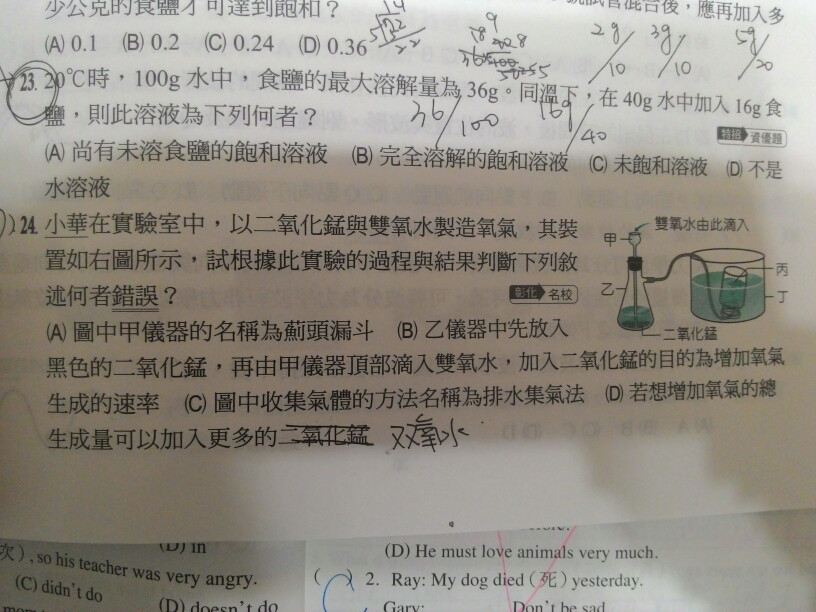 少公克的食鹽才可達到飽和？
(A) 0.1 (B) 0.2 (C) 0.24 (D) 0.36
後，應再加入多
2g/10 3g/10 5g/20
23. 20℃時，100g 水中，食鹽的最大溶解量為 36g。同溫下，在 40g 水中加入 16g 食
鹽，則此溶液為下列何者？
36/100 16g/40
特招 資優題
(A) 尚有未溶食鹽的飽和溶液 (B) 完全溶解的飽和溶液 (C) 未飽和溶液 (D) 不是
水溶液
24. 小華在實驗室中，以二氧化錳與雙氧水製造氧氣，其裝
置如右圖所示，試根據此實驗的過程與結果判斷下列敘
述何者錯誤？
彰化 名校
雙氧水由此滴入
甲
乙
丙
丁
二氧化錳
(A) 圖中甲儀器的名稱為薊頭漏斗 (B) 乙儀器中先放入
黑色的二氧化錳，再由甲儀器頂部滴入雙氧水，加入二氧化錳的目的為增加氧氣
生成的速率 (C) 圖中收集氣體的方法名稱為排水集氣法 (D) 若想增加氧氣的總
生成量可以加入更多的二氧化錳 双氧水
次), so his teacher was very angry.
(D) in
(C) didn't do
(D) doesn't do
(D) He must love animals very much.
( ) 2. Ray: My dog died (死) yesterday.
Gary: Don't be sad.